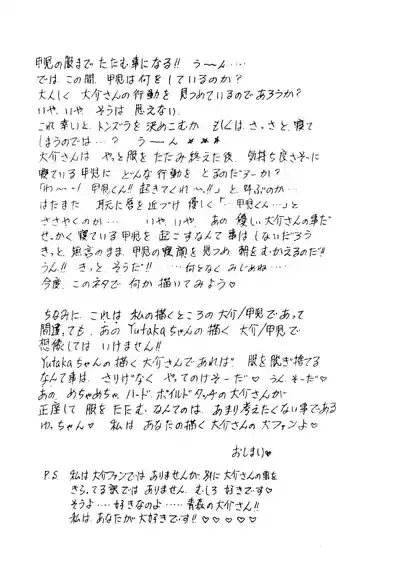 甲児の服まで たたむ事になる!! うーん‥‥
では、この間、甲児は何をしているのか?
大人しく 大介さんの行動を 見つめているのであろうか?
いや、いや、そうは 思えない。
これ幸いと、トンズラを決めこむか もしくは、さっさと、寝て
しまうのでは…? うーん
大介さんは やっと服を たたみ終えた後、気持ち良さそーに
寝ている甲児に どんな行動を とるのだろーか?
「わ〜〜! 甲児くん!! 起きてくれ〜!!」と 叫ぶのか…
はたまた 耳元に唇を近づけ 優しく「…甲児くん…」と
ささやくのか… いや、いや、あの 優しい大介さんの事だ
せっかく寝ている甲児を 起こすなんて事は しないだろう
きっと、無言のまま、甲児の寝顔を見つめ 朝をむかえるのだ!!
うん!! きっと そうだ!! …何となく みじめね…
今度、このネタで 何か描いてみよう♡

ちなみに、これは 私の描くところの大介/甲児であって
間違っても、あの Yutakaちゃんの描く 大介/甲児で
想像しては いけません!!
Yutakaちゃんの描く大介さんであれば 服を脱ぎ捨てる
なんて事は、さりげなく やってのけそーだ♡ うん、そーだ♡
あの めちゃめちゃ ハード、ボイルドタッチの大介さんが
正座して 服を たたむ、なんてのは、あまり考えたくない事である
ゆ、ちゃん♡ 私は あなたの描く大介さんの大ファンよ♡
おしまい♡
P.S. 私は大介ファンでは ありませんが、別に大介さんの事を
きらってる訳では ありません。むしろ 好きです♡
そうよ‥‥好きなのよ‥‥‥青森の大介さん!!
私は、あなたが大好きです!! ♡♡♡♡♡